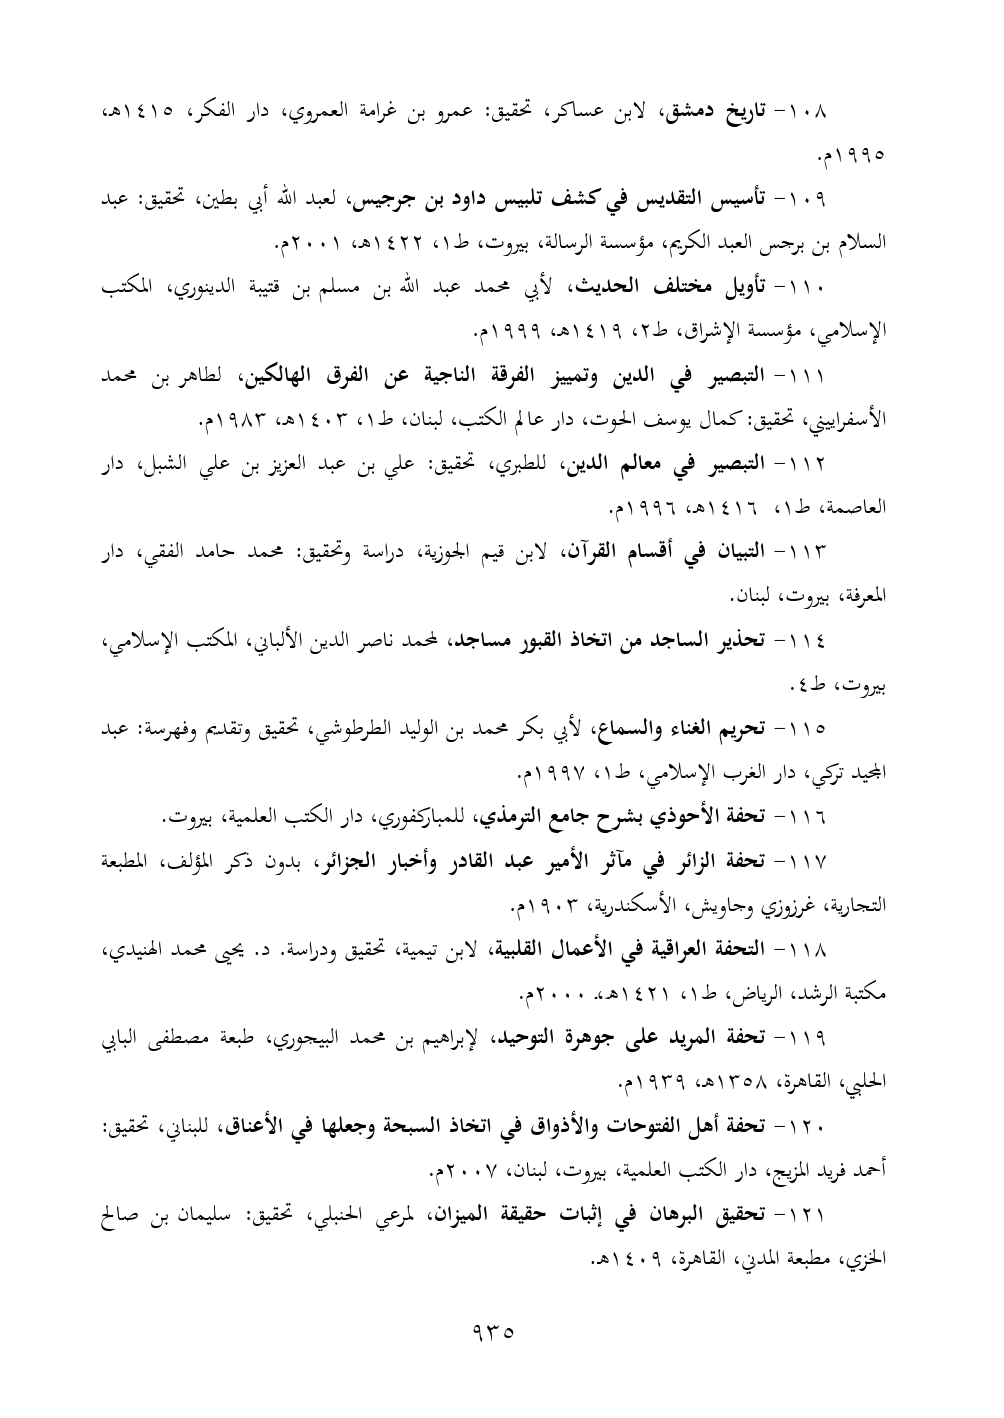 ١٠٨- تاريخ دمشق، لابن عساكر، تحقيق: عمرو بن غرامة العمروي، دار الفكر، ١٤١٥هـ،
١٩٩٥م.
١٠٩- تأسيس التقديس في كشف تلبيس داود بن جرجيس، لعبد الله أبي بطين، تحقيق: عبد
السلام بن برجس العبد الكريم، مؤسسة الرسالة، بيروت، ط١، ١٤٢٢هـ، ٢٠٠١م.
١١٠- تأويل مختلف الحديث، لأبي محمد عبد الله بن مسلم بن قتيبة الدينوري، المكتب
الإسلامي، مؤسسة الإشراق، ط٢، ١٤١٩هـ، ١٩٩٩م.
١١١- التبصير في الدين وتمييز الفرقة الناجية عن الفرق الهالكين، لطاهر بن محمد
الأسفراييني، تحقيق: كمال يوسف الحوت، دار عالم الكتب، لبنان، ط١، ١٤٠٣هـ، ١٩٨٣م.
١١٢- التبصير في معالم الدين، للطبري، تحقيق: علي بن عبد العزيز بن علي الشبل، دار
العاصمة، ط١، ١٤١٦هـ، ١٩٩٦م.
١١٣- التبيان في أقسام القرآن، لابن قيم الجوزية، دراسة وتحقيق: محمد حامد الفقي، دار
المعرفة، بيروت، لبنان.
١١٤- تحذير الساجد من اتخاذ القبور مساجد، لمحمد ناصر الدين الألباني، المكتب الإسلامي،
بيروت، ط٤.
١١٥- تحريم الغناء والسماع، لأبي بكر محمد بن الوليد الطرطوشي، تحقيق وتقديم وفهرسة: عبد
المجيد تركي، دار الغرب الإسلامي، ط١، ١٩٩٧م.
١١٦- تحفة الأحوذي بشرح جامع الترمذي، للمباركفوري، دار الكتب العلمية، بيروت.
١١٧- تحفة الزائر في مآثر الأمير عبد القادر وأخبار الجزائر، بدون ذكر المؤلف، المطبعة
التجارية، غرزوزي وجاويش، الأسكندرية، ١٩٠٣م.
١١٨- التحفة العراقية في الأعمال القلبية، لابن تيمية، تحقيق ودراسة. د. يحيى محمد الهنيدي،
مكتبة الرشد، الرياض، ط١، ١٤٢١هـ، ٢٠٠٠م.
١١٩- تحفة المريد على جوهرة التوحيد، لإبراهيم بن محمد البيجوري، طبعة مصطفى البابي
الحلبي، القاهرة، ١٣٥٨هـ، ١٩٣٩م.
١٢٠- تحفة أهل الفتوحات والأذواق في اتخاذ السبحة وجعلها في الأعناق، للبناني، تحقيق:
أحمد فريد المزيج، دار الكتب العلمية، بيروت، لبنان، ٢٠٠٧م.
١٢١- تحقيق البرهان في إثبات حقيقة الميزان، لمرعي الحنبلي، تحقيق: سليمان بن صالح
الخزي، مطبعة المدني، القاهرة، ١٤٠٩هـ.
٩٣٥